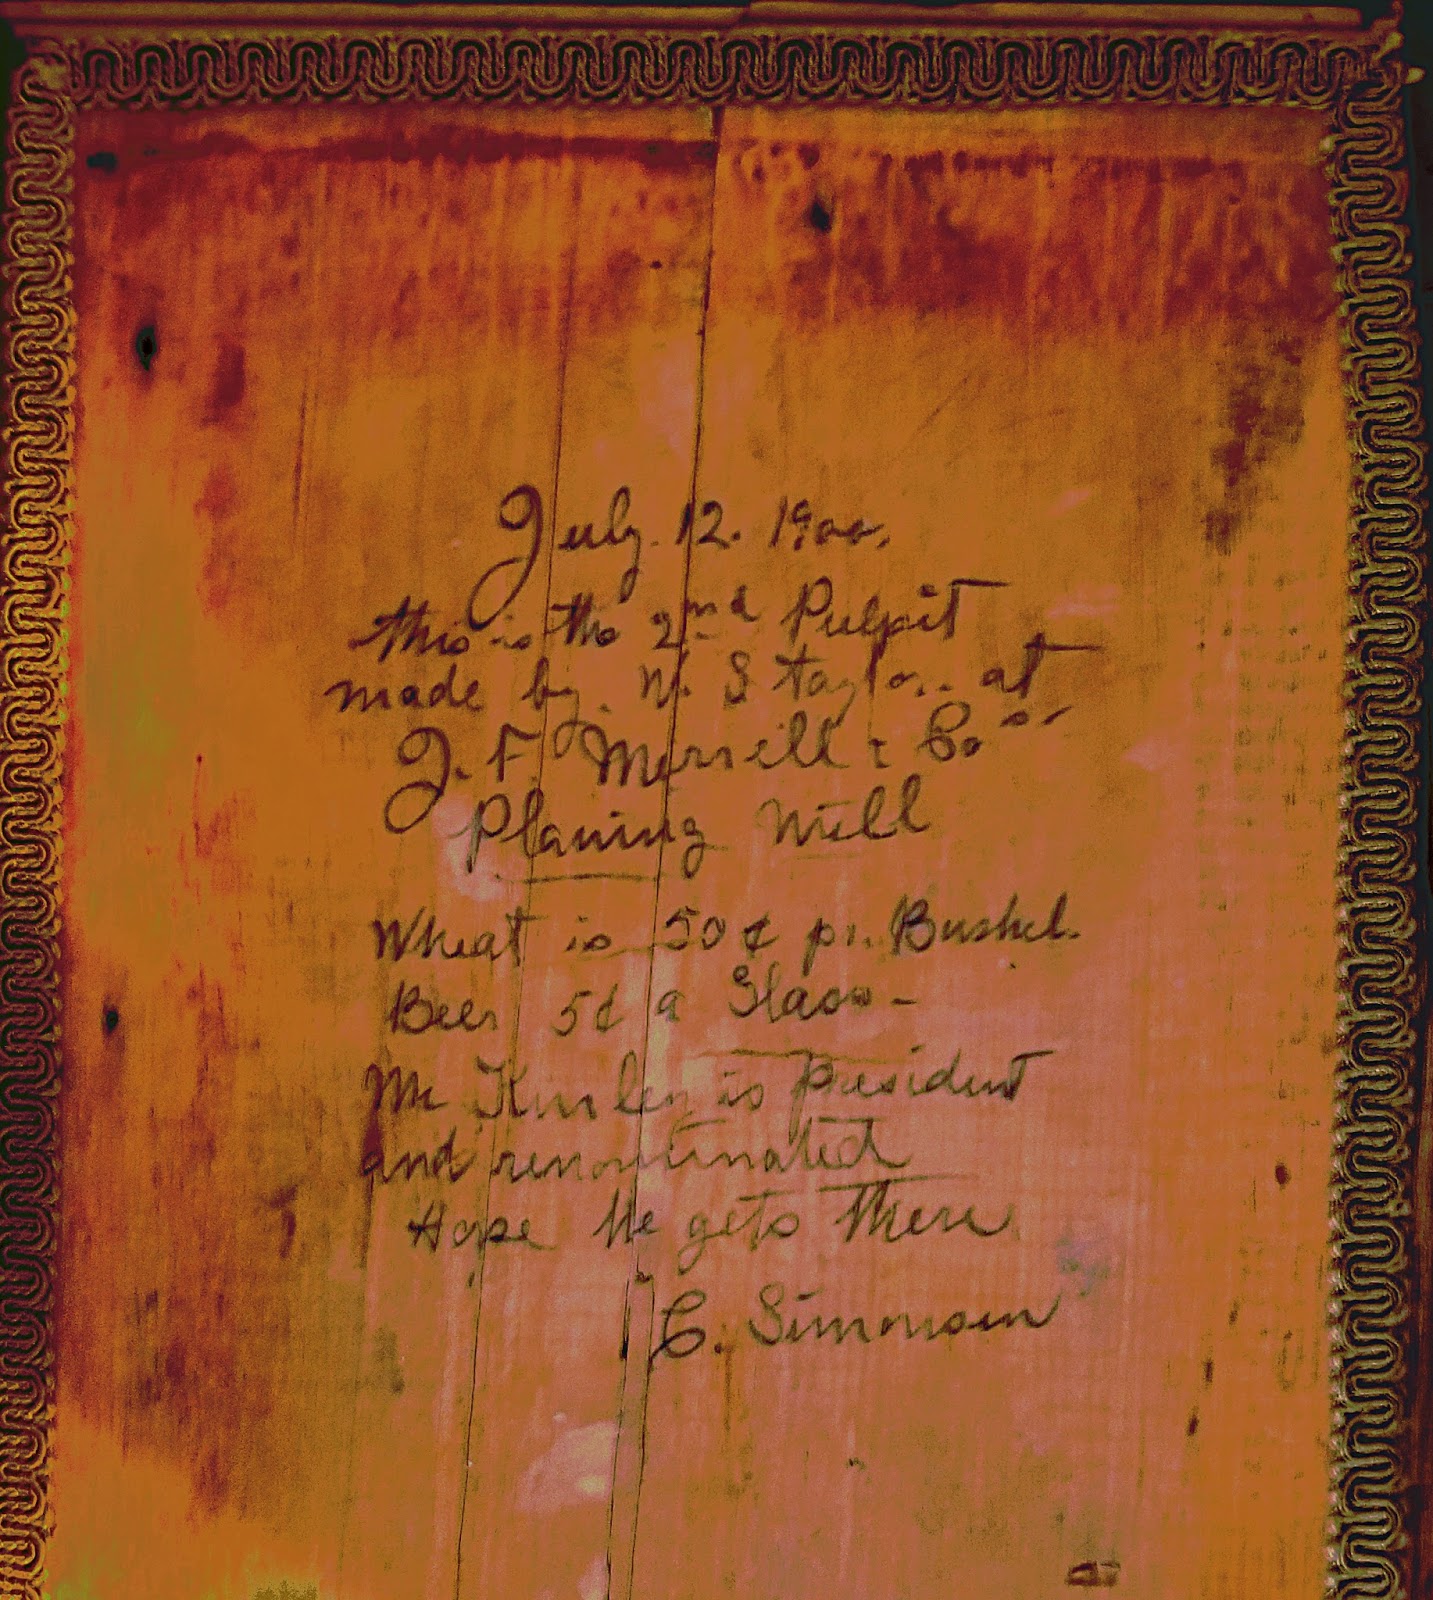 July. 12. 1900.
this is the 2nd Pulpit
made by W. S Taylor. at
J. F. Merrill & Co os
Planing Mill
Wheat is 50¢ pr. Bushel.
Beer 5¢ a Glass -
Mc Kinley is President
and renominated
Hope He gets There
C. Simonsen